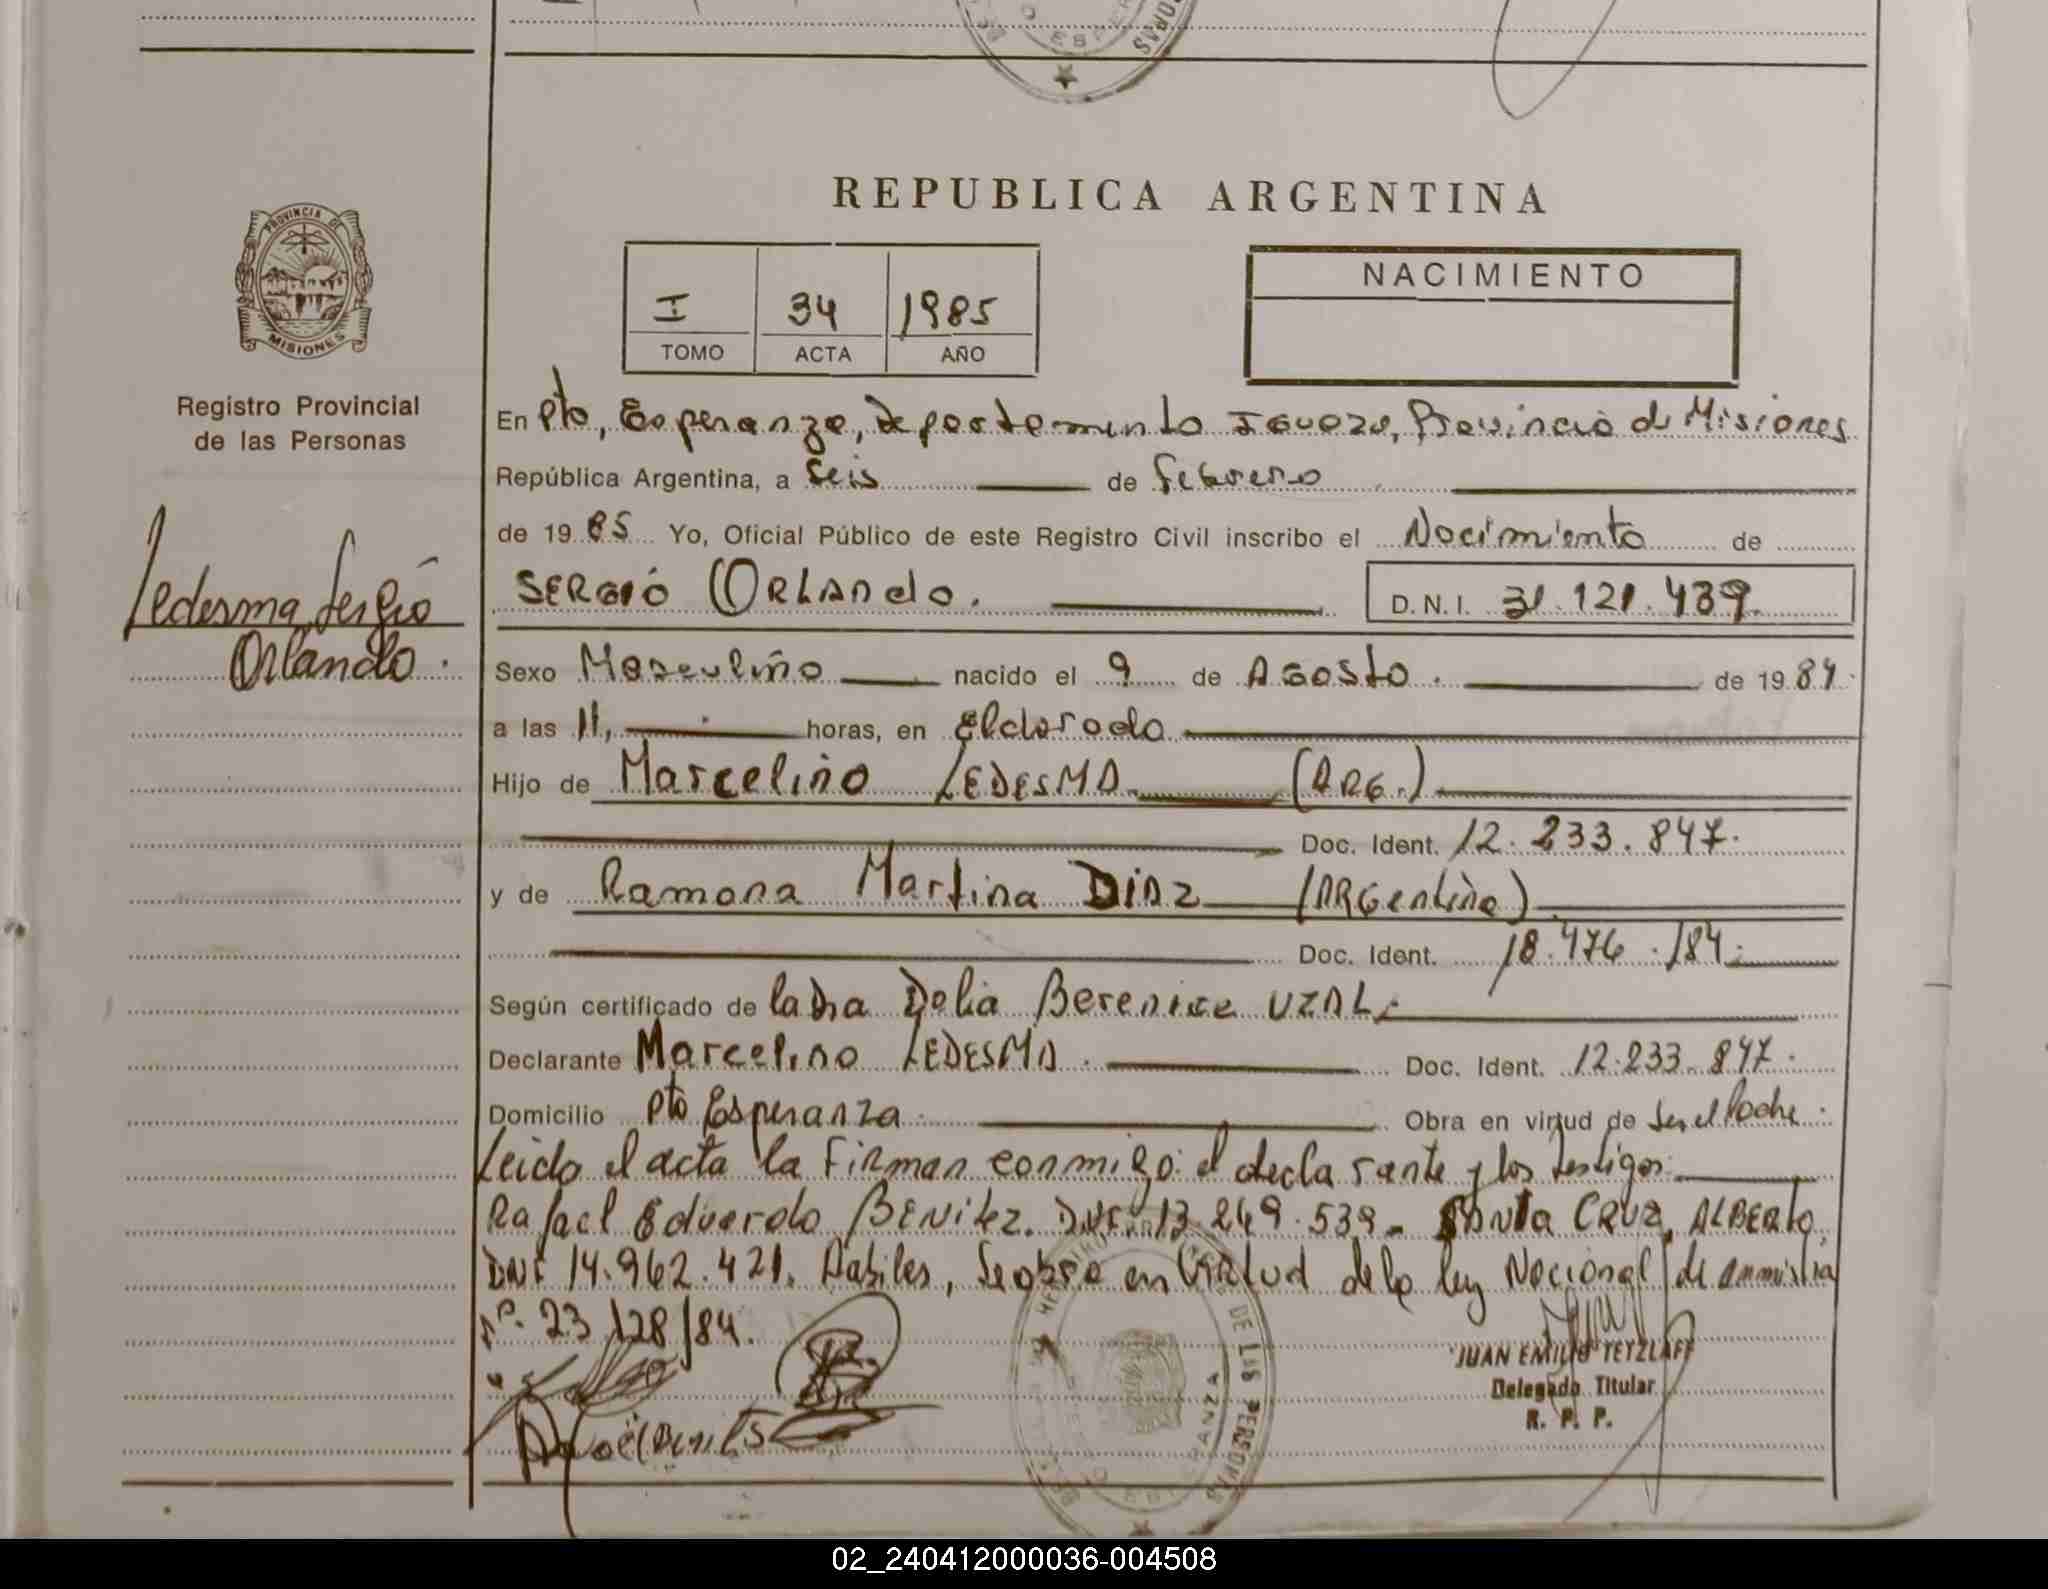 REPUBLICA ARGENTINA
PROVINCIA DE
MISIONES
Registro Provincial
de las Personas
I 34 1985
TOMO ACTA AÑO
NACIMIENTO
Ledesma Sergio
Orlando.
En Pto, Esperanza, Departamento Iguazu, Provincia de Misiones
República Argentina, a Seis de Febrero
de 19 85 Yo, Oficial Público de este Registro Civil inscribo el Nacimiento de
SERGIO ORLANdo. D.N.I. 31.121.439.
Sexo Masculino nacido el 9 de Agosto. de 19 84
a las 11, horas, en Eldorado
Hijo de Marcelino LEDESMA (ARG.)
Doc. Ident. 12.233.847.
y de Ramona Martina DIAZ (ARGentina)
Doc. Ident. 18.476.184.
Según certificado de la Dra Delia Berenice UZAL.
Declarante Marcelino LEDESMA. Doc. Ident. 12.233.847.
Domicilio Pto Esperanza. Obra en virtud de Ser el Padre.
Leido el acta la Firman conmigo: el declarante y los testigos:
Rafael Eduardo BENitez. DNI. 13.249.539- SANta CRUZ, ALBERto
DNI 14.962.421. Habiles, Se obra en Virtud de la ley Nacional de ammistia
Nº. 23.128/84.
DE LAS PERSONAS
JUAN EMILIO TETZLAFF
Delegado Titular
R. P. P.
02_240412000036-004508